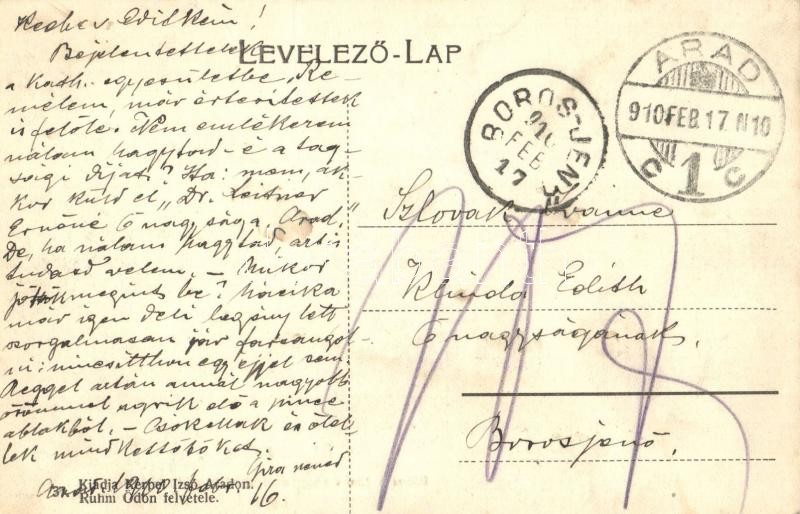 Kedves Editkém!
LEVELEZŐ-LAP
Bejelentettelek
a kath. egyesületbe, Re-
mélem, már értesítettek
is felőle. Nem emlékezem
nálam hagytad-é a tag-
sági díjat? Ha: nem, ak-
kor küld el „Dr. Leitner
Ernőné Ő nagysága, Arad.”
De, ha nálam hagytad, azt is
tudasd velem. – Mikor
jöttök megint be? Macika
már igen deli legény lett
szorgalmasan jár farsangol-
ni: nincs itthon egy éjjel sem.
Reggel aztán annál nagyobb
örömmel ugrik elő a pince
ablakból. – Csókollak és ölel-
lek mindkettőtöket
nénéd
16.
ARAD
910 FEB. 17 N 10
C 1 C
BOROS-JENŐ
910
FEB
17
Szlovák Ivánné
Klinda Edith
Ő nagyságának,
Borosjenő,
Kiadja Kerpel Izsó Aradon.
Ruhm Ödön felvétele.